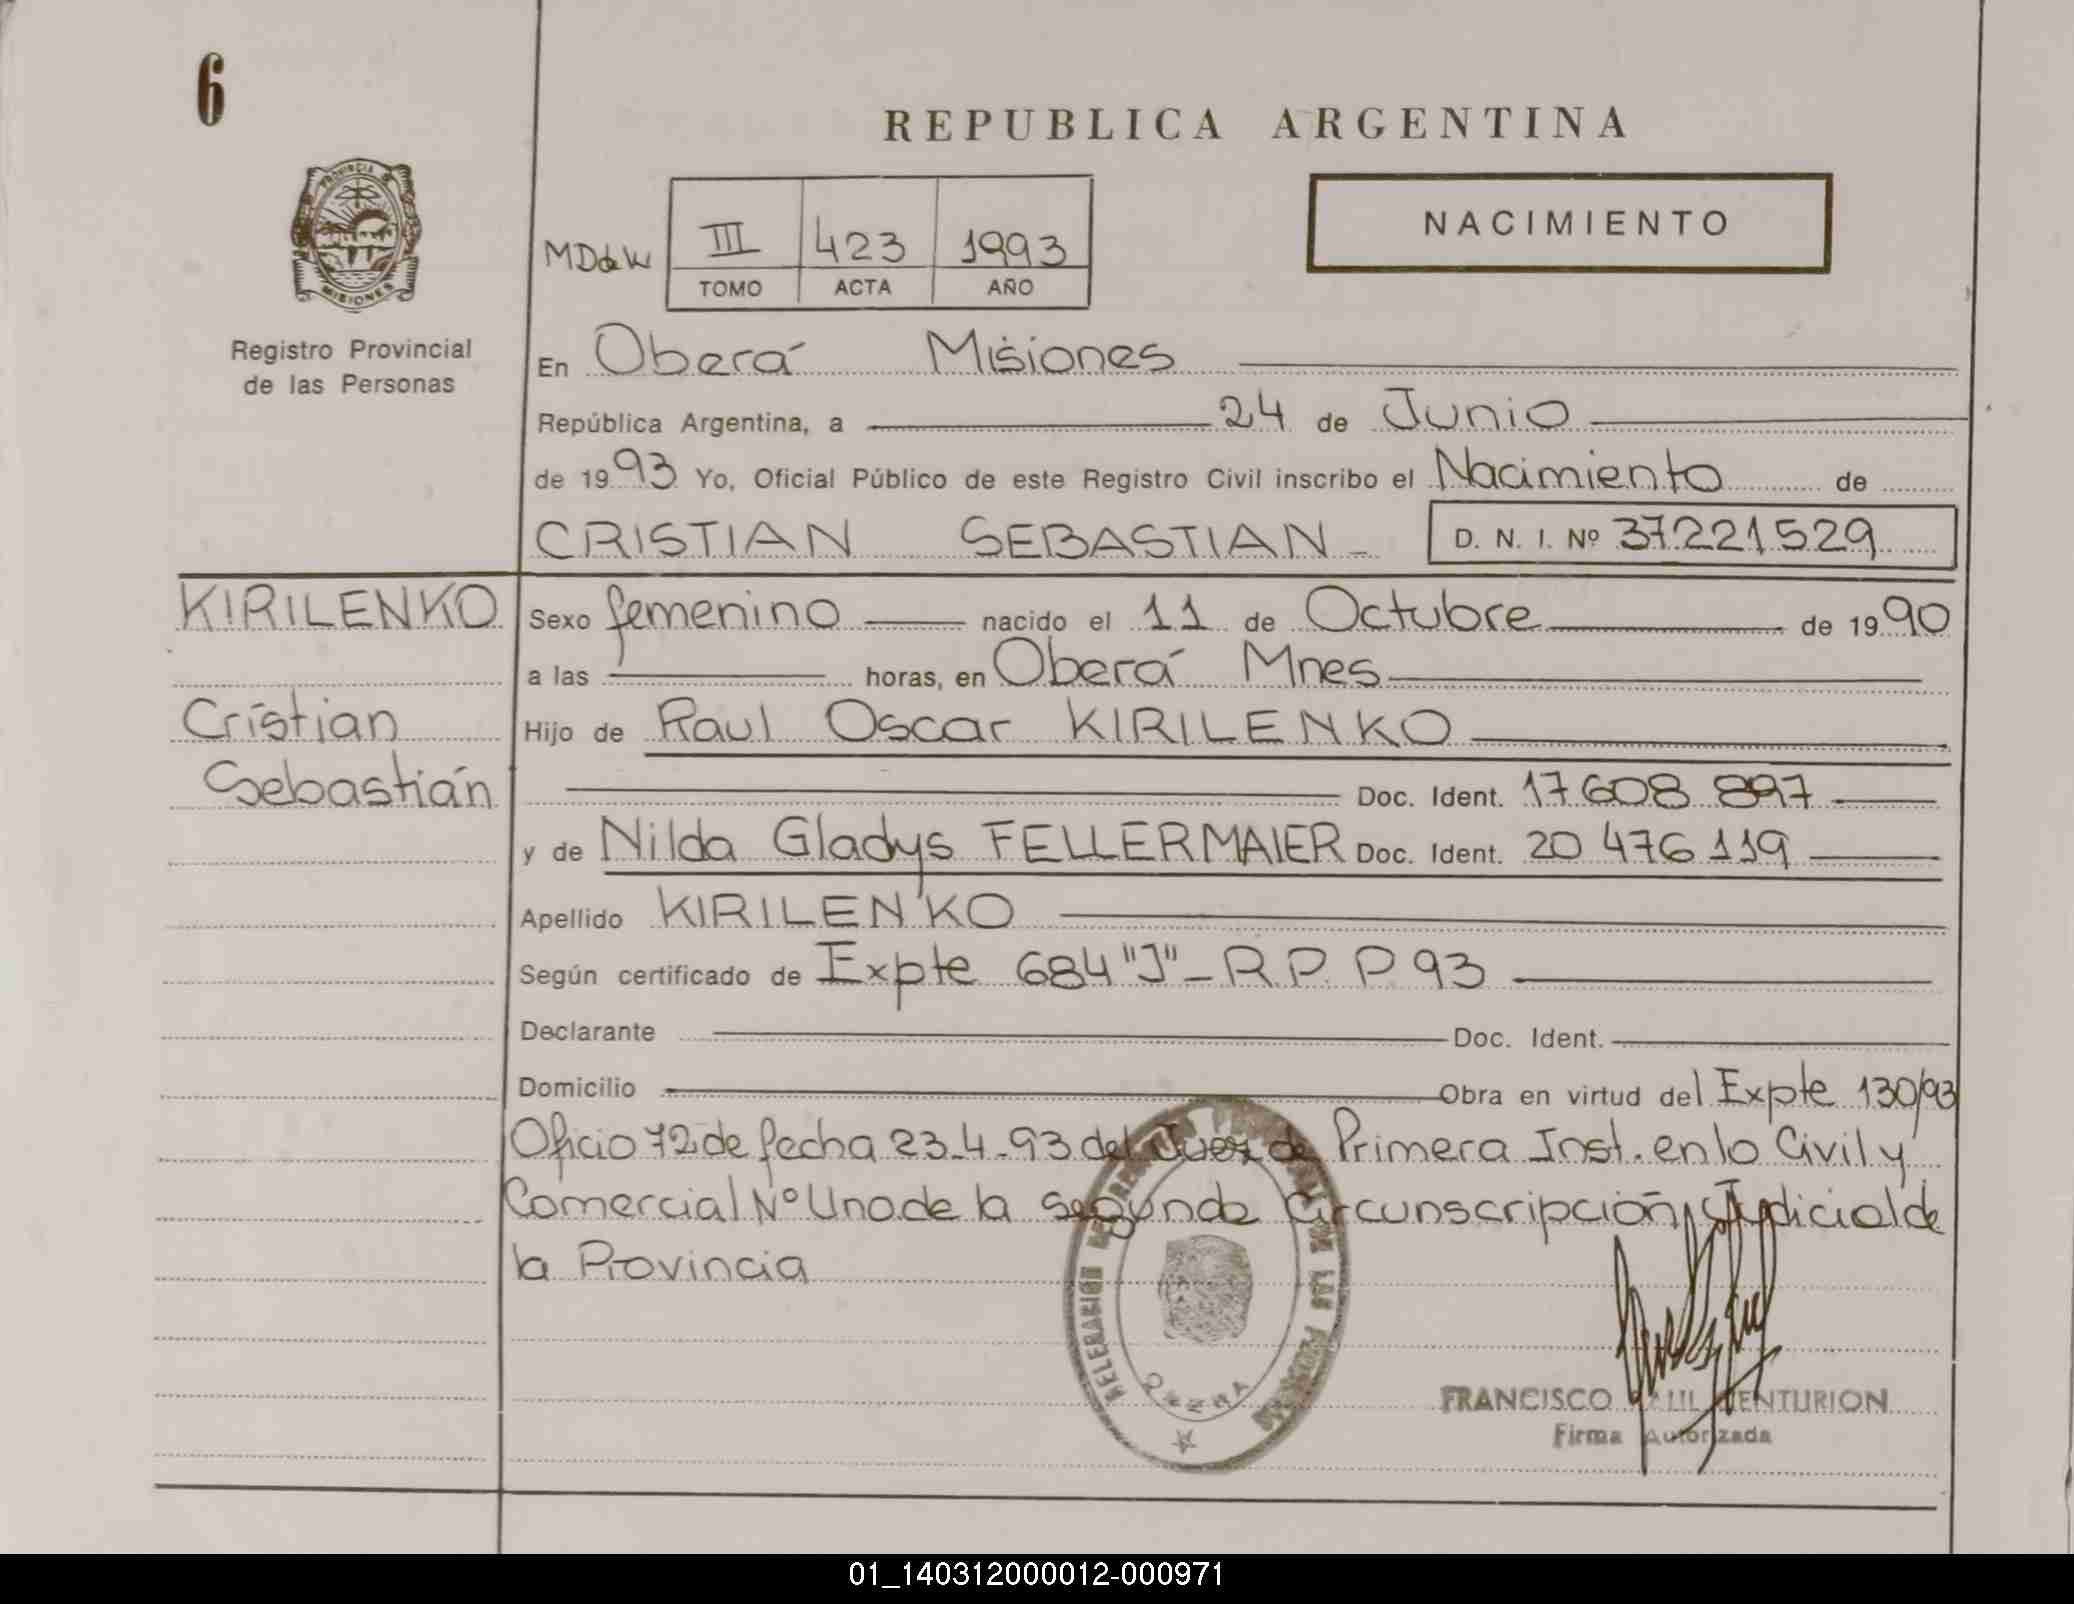 6
REPUBLICA ARGENTINA
PROVINCIA D
MISIONES
NACIMIENTO
III 423 1993
TOMO ACTA AÑO
Registro Provincial
de las Personas
En Oberá Misiones
República Argentina, a 24 de Junio
de 1993 Yo, Oficial Público de este Registro Civil inscribo el Nacimiento de
CRISTIAN SEBASTIAN D. N. I. Nº 37221529
KIRILENKO
Cristian
Sebastián
Sexo femenino nacido el 11 de Octubre de 1990
a las horas, en Oberá Mnes
Hijo de Raul Oscar KIRILENKO
Doc. Ident. 17 608 897
y de Nilda Gladys FELLERMAIER Doc. Ident. 20 476 119
Apellido KIRILENKO
Según certificado de Expte 684 "J" - R.P.P 93
Declarante Doc. Ident.
Domicilio Obra en virtud del Expte 130/93
Oficio 72 de fecha 23-4-93 del Juez de Primera Inst. en lo Civil y
Comercial Nº Uno de la segunda Circunscripción Judicial de
la Provincia
DE LAS PERSONAS
FRANCISCO CENTURION
Firma Autorizada
01_140312000012-000971